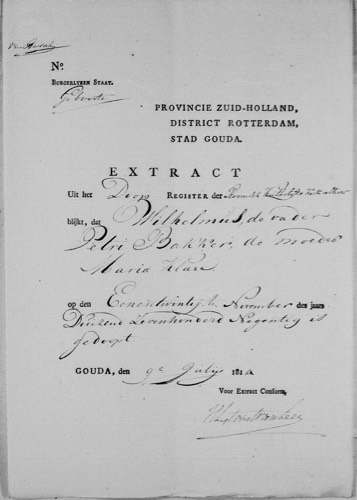 No.
BURGERLYKEN STAAT.
Geboorte
PROVINCIE ZUID-HOLLAND,
DISTRICT ROTTERDAM,
STAD GOUDA.
EXTRACT
Uit het Doop REGISTER der
blijkt, dat Wilhelmus, de vader
Petri Bakker, de moeder
Maria
op den Eenentwintigste November des jaars
Duizend Zevenhonderd Negentig is
gedoopt
GOUDA, den 9e July 181
Voor Extract Conform,